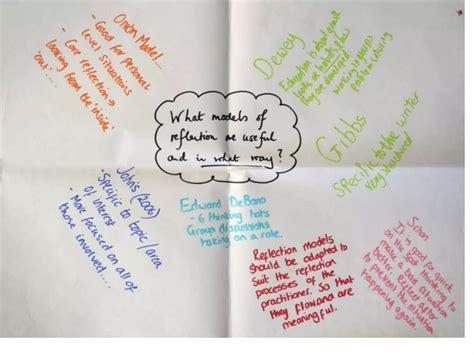 Onion Model...
- Good for personal
level situations
- Core reflection →
looking from the 'inside'
'out'...
Dewey
Education is about
look at habits &
they are
working in teams
problem solving
What models of
reflection are useful
and in what way?
Gibbs
Specific to the writer
very structured
Johns (2006)
- Specific to topic/area
of interest
- More focused on all of
those involved....
Edward DeBono
- 6 thinking hats
Group discussions
taking on a role.
Reflection models
should be adapted to
suit the reflection
processes of the
practitioner. So that
they flow and are
meaningful.
Schon
It is good for quick
on the spot thinking to
make a bad situation
better. Reflect after
to prevent the situation
happening again.